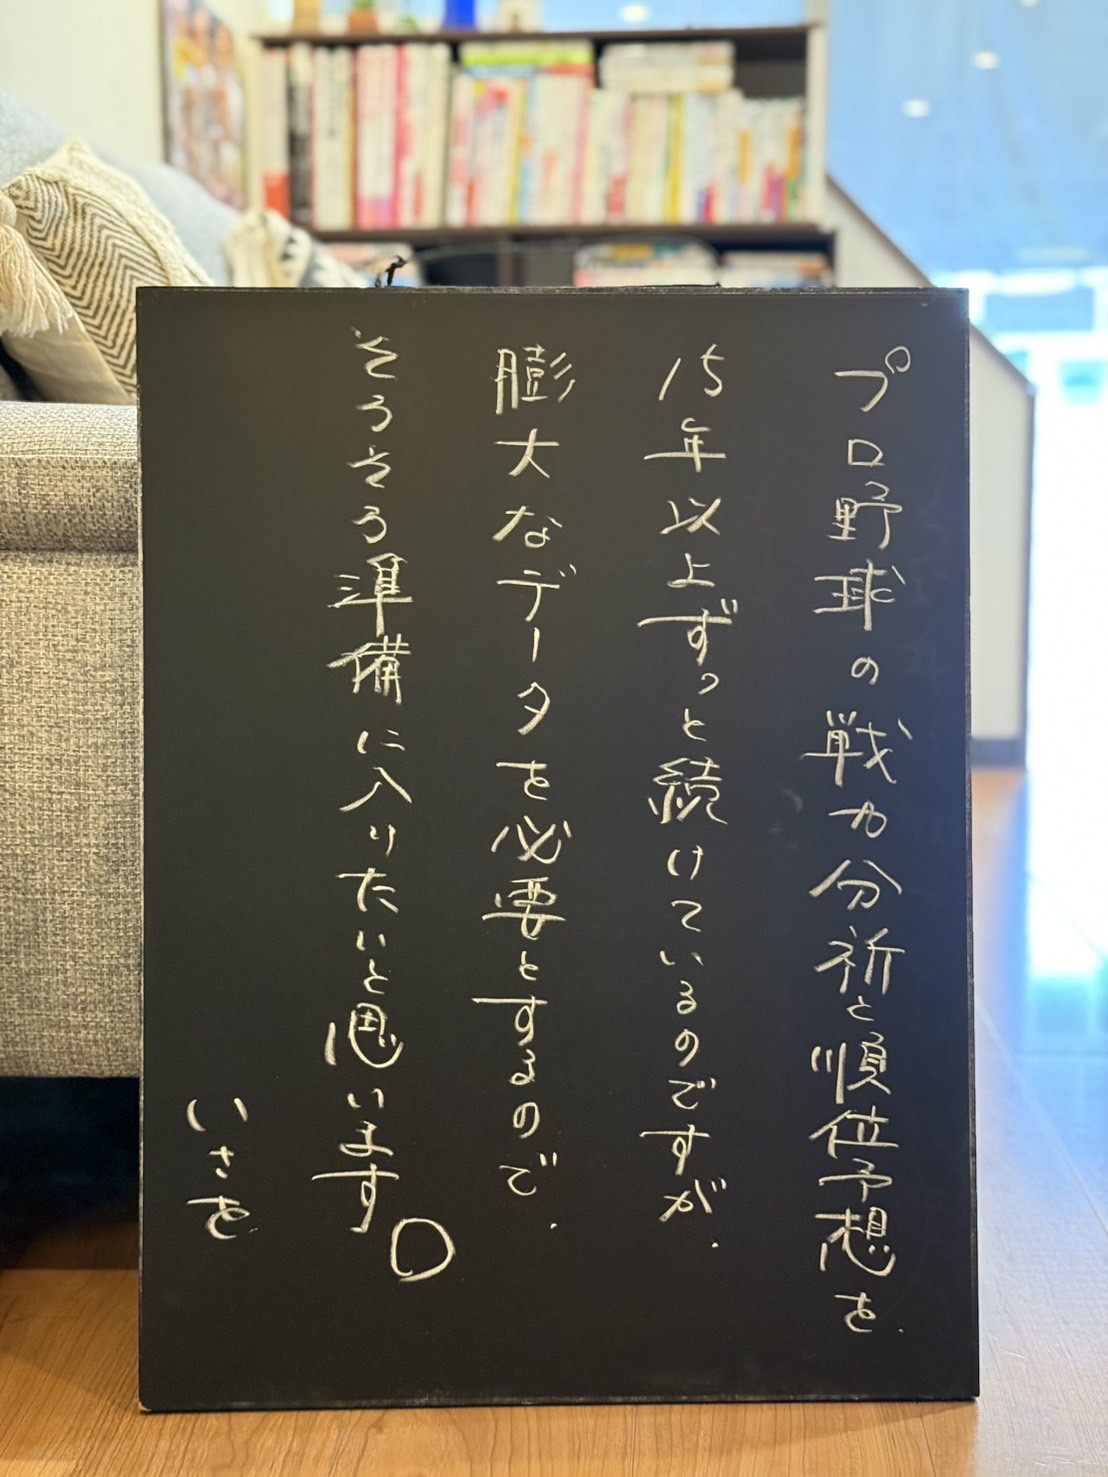 プロ野球の戦力分析と順位予想を、
15年以上ずっと続けているのですが、
膨大なデータを必要とするので、
そろそろ準備に入りたいと思います。
いさを